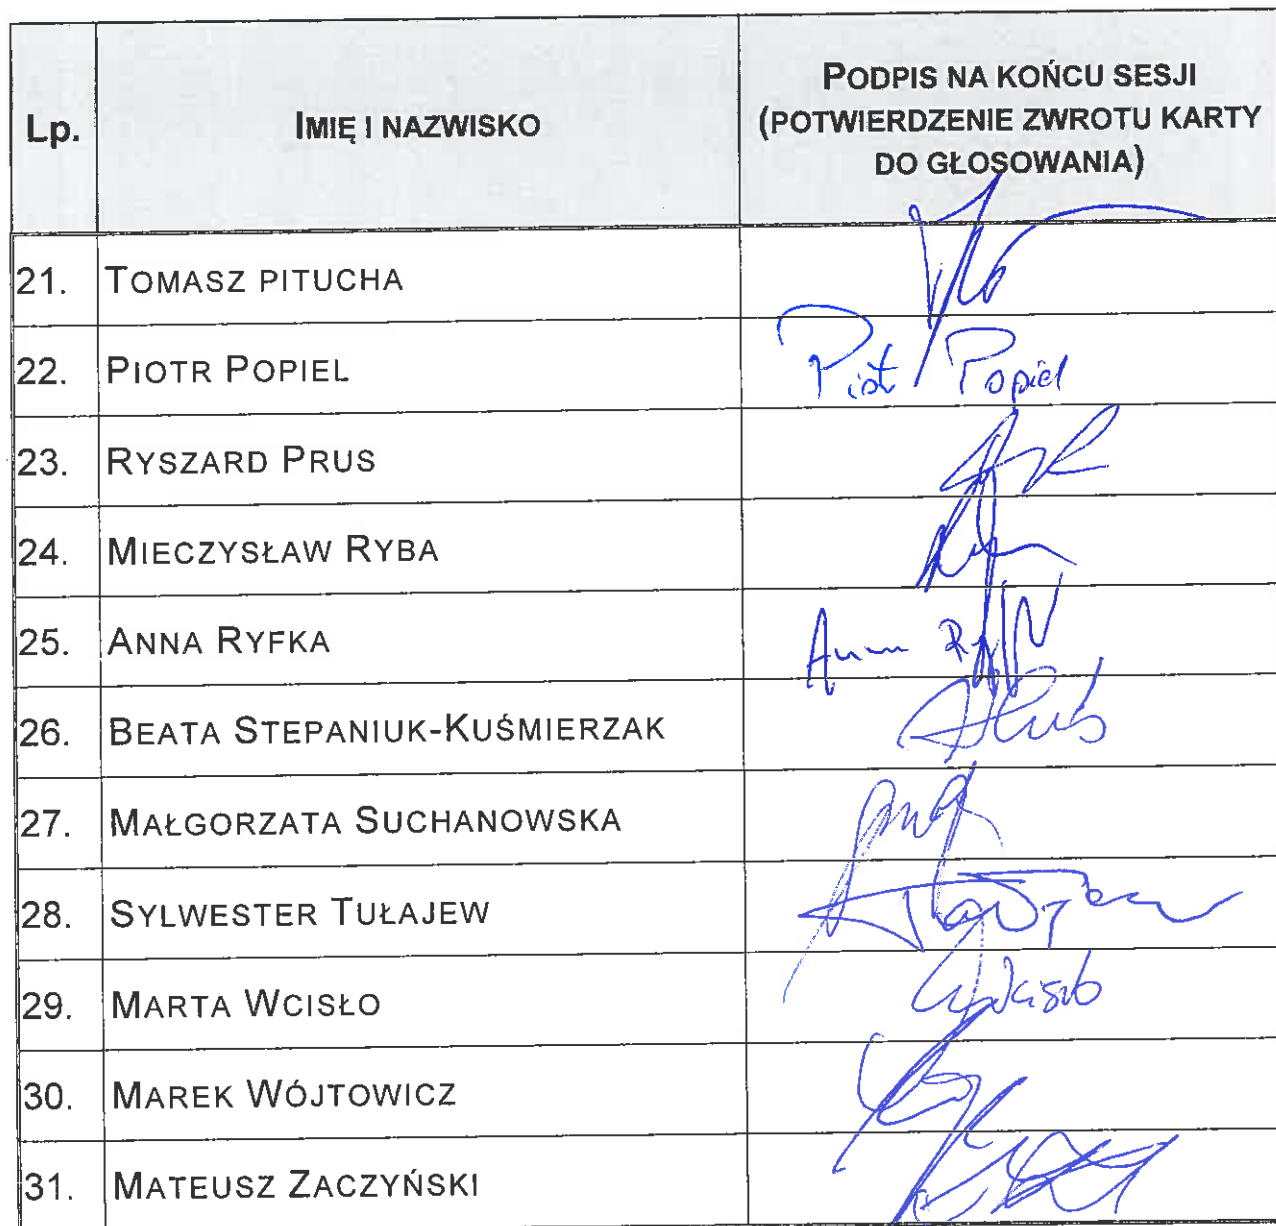 Lp. IMIĘ I NAZWISKO PODPIS NA KOŃCU SESJI
(POTWIERDZENIE ZWROTU KARTY
DO GŁOSOWANIA)
21. TOMASZ PITUCHA
22. PIOTR POPIEL Piotr Popiel
23. RYSZARD PRUS
24. MIECZYSŁAW RYBA
25. ANNA RYFKA Anna
26. BEATA STEPANIUK-KUŚMIERZAK
27. MAŁGORZATA SUCHANOWSKA
28. SYLWESTER TUŁAJEW
29. MARTA WCISŁO
30. MAREK WÓJTOWICZ
31. MATEUSZ ZACZYŃSKI